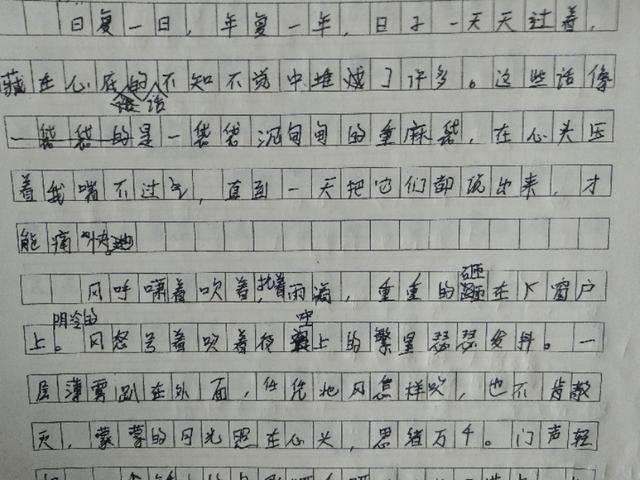 日复一日，年复一年，日子一天天过着，
藏在心底的不知不觉中堆成了许多。这些话像
谎话
一袋袋的是一袋袋沉甸甸的重麻袋，在心头压
着我喘不过气，直到一天把它们都说出来，才
能痛快地
风呼啸着吹着，拖着雨滴，重重的砸在了窗户
阴冷的
上。风怒号着吹着夜空上的繁星瑟瑟发抖。一
层薄雾趴在外面，任凭北风怎样吹，也不肯散
灭，蒙蒙的月光照在心头，思绪万千。门声轻